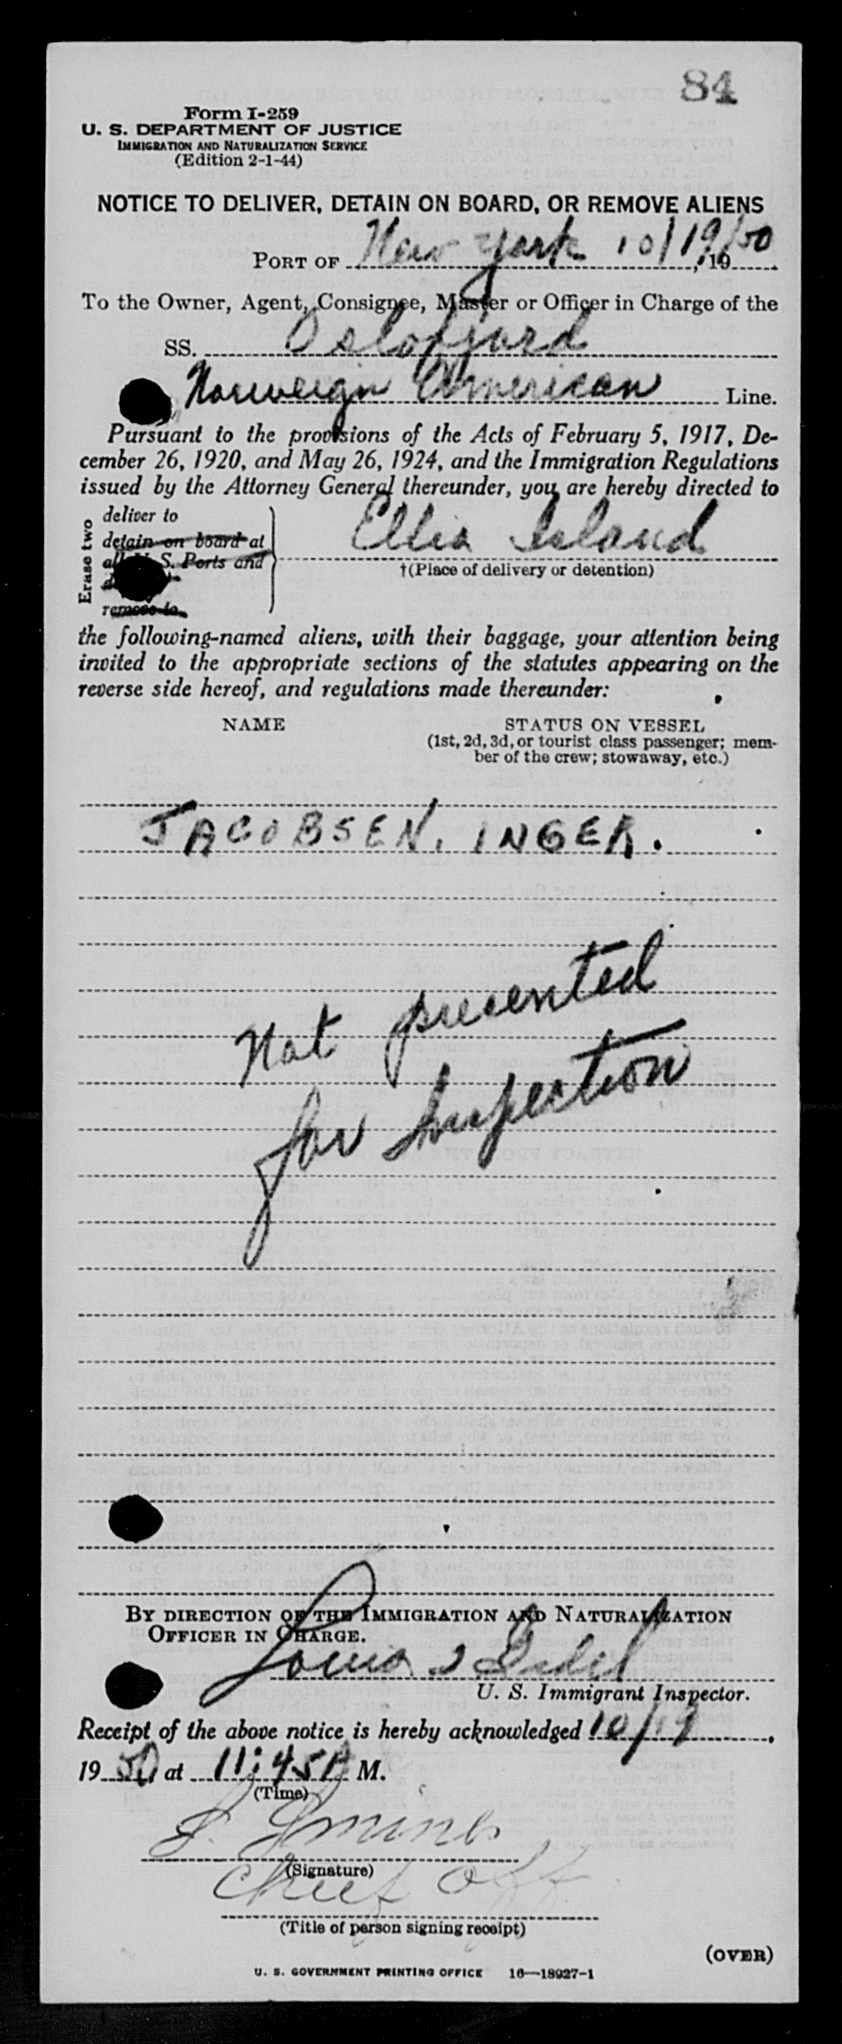 84
Form I-259
U. S. DEPARTMENT OF JUSTICE
IMMIGRATION AND NATURALIZATION SERVICE
(Edition 2-1-44)
NOTICE TO DELIVER, DETAIN ON BOARD, OR REMOVE ALIENS
PORT OF New York 10/19/50, 19
To the Owner, Agent, Consignee, Master or Officer in Charge of the
SS. Oslofjord
Norweign American Line.
Pursuant to the provisions of the Acts of February 5, 1917, De-
cember 26, 1920, and May 26, 1924, and the Immigration Regulations
issued by the Attorney General thereunder, you are hereby directed to
Erase two
deliver to
detain on board at
all U. S. Ports and
remove to
Ellis Island
†(Place of delivery or detention)
the following-named aliens, with their baggage, your attention being
invited to the appropriate sections of the statutes appearing on the
reverse side hereof, and regulations made thereunder:
NAME
STATUS ON VESSEL
(1st, 2d, 3d, or tourist class passenger; mem-
ber of the crew; stowaway, etc.)
JACOBSEN, INGER.
Not presented
for Inspection
BY DIRECTION OF THE IMMIGRATION AND NATURALIZATION
OFFICER IN CHARGE.
Louis
U. S. Immigrant Inspector.
Receipt of the above notice is hereby acknowledged 10/19,
1950, at 11:45A M.
(Time)
(Signature)
Chief Off
(Title of person signing receipt)
(OVER)
U. S. GOVERNMENT PRINTING OFFICE 16—18927-1